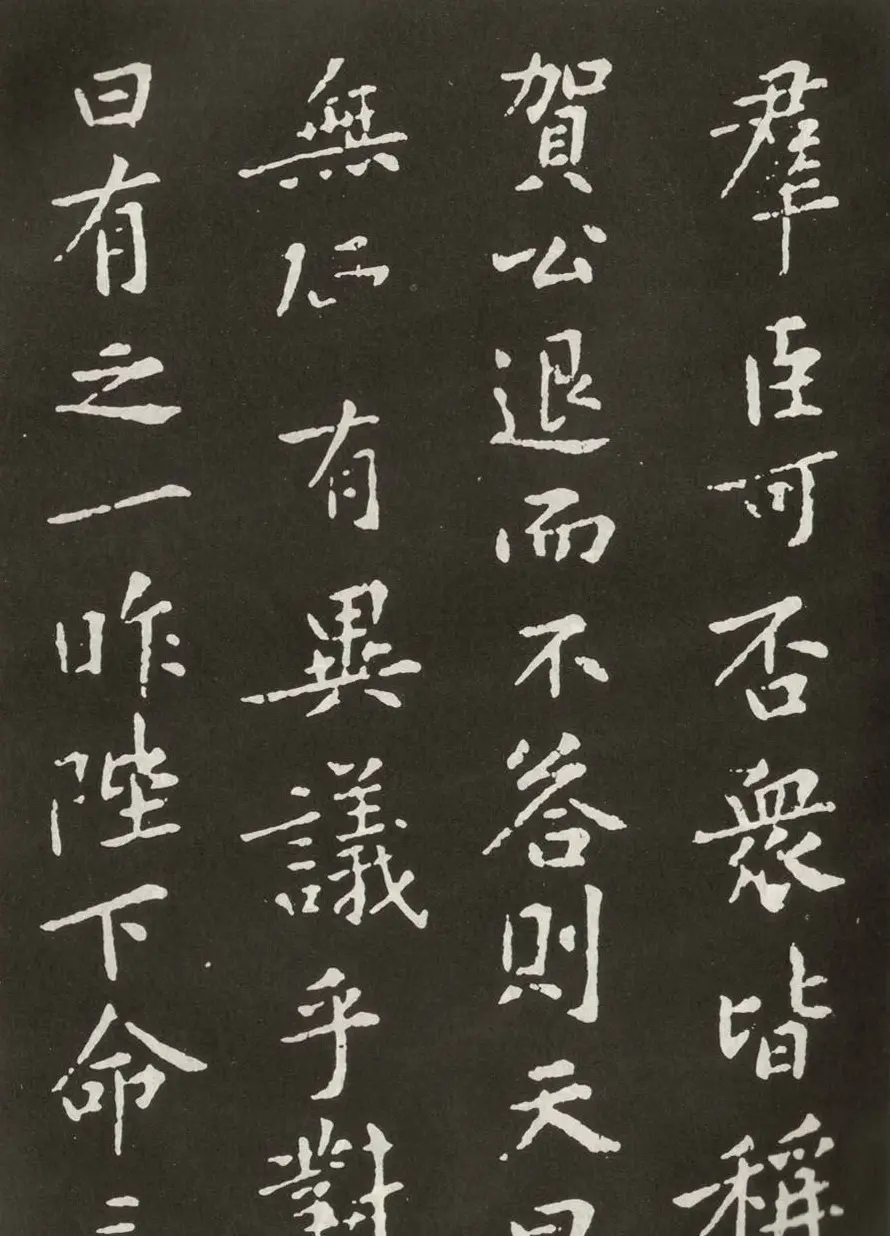 羣臣可否衆皆稱
賀公退而不答則天曰
無有異議乎對
曰有之一昨陛下命